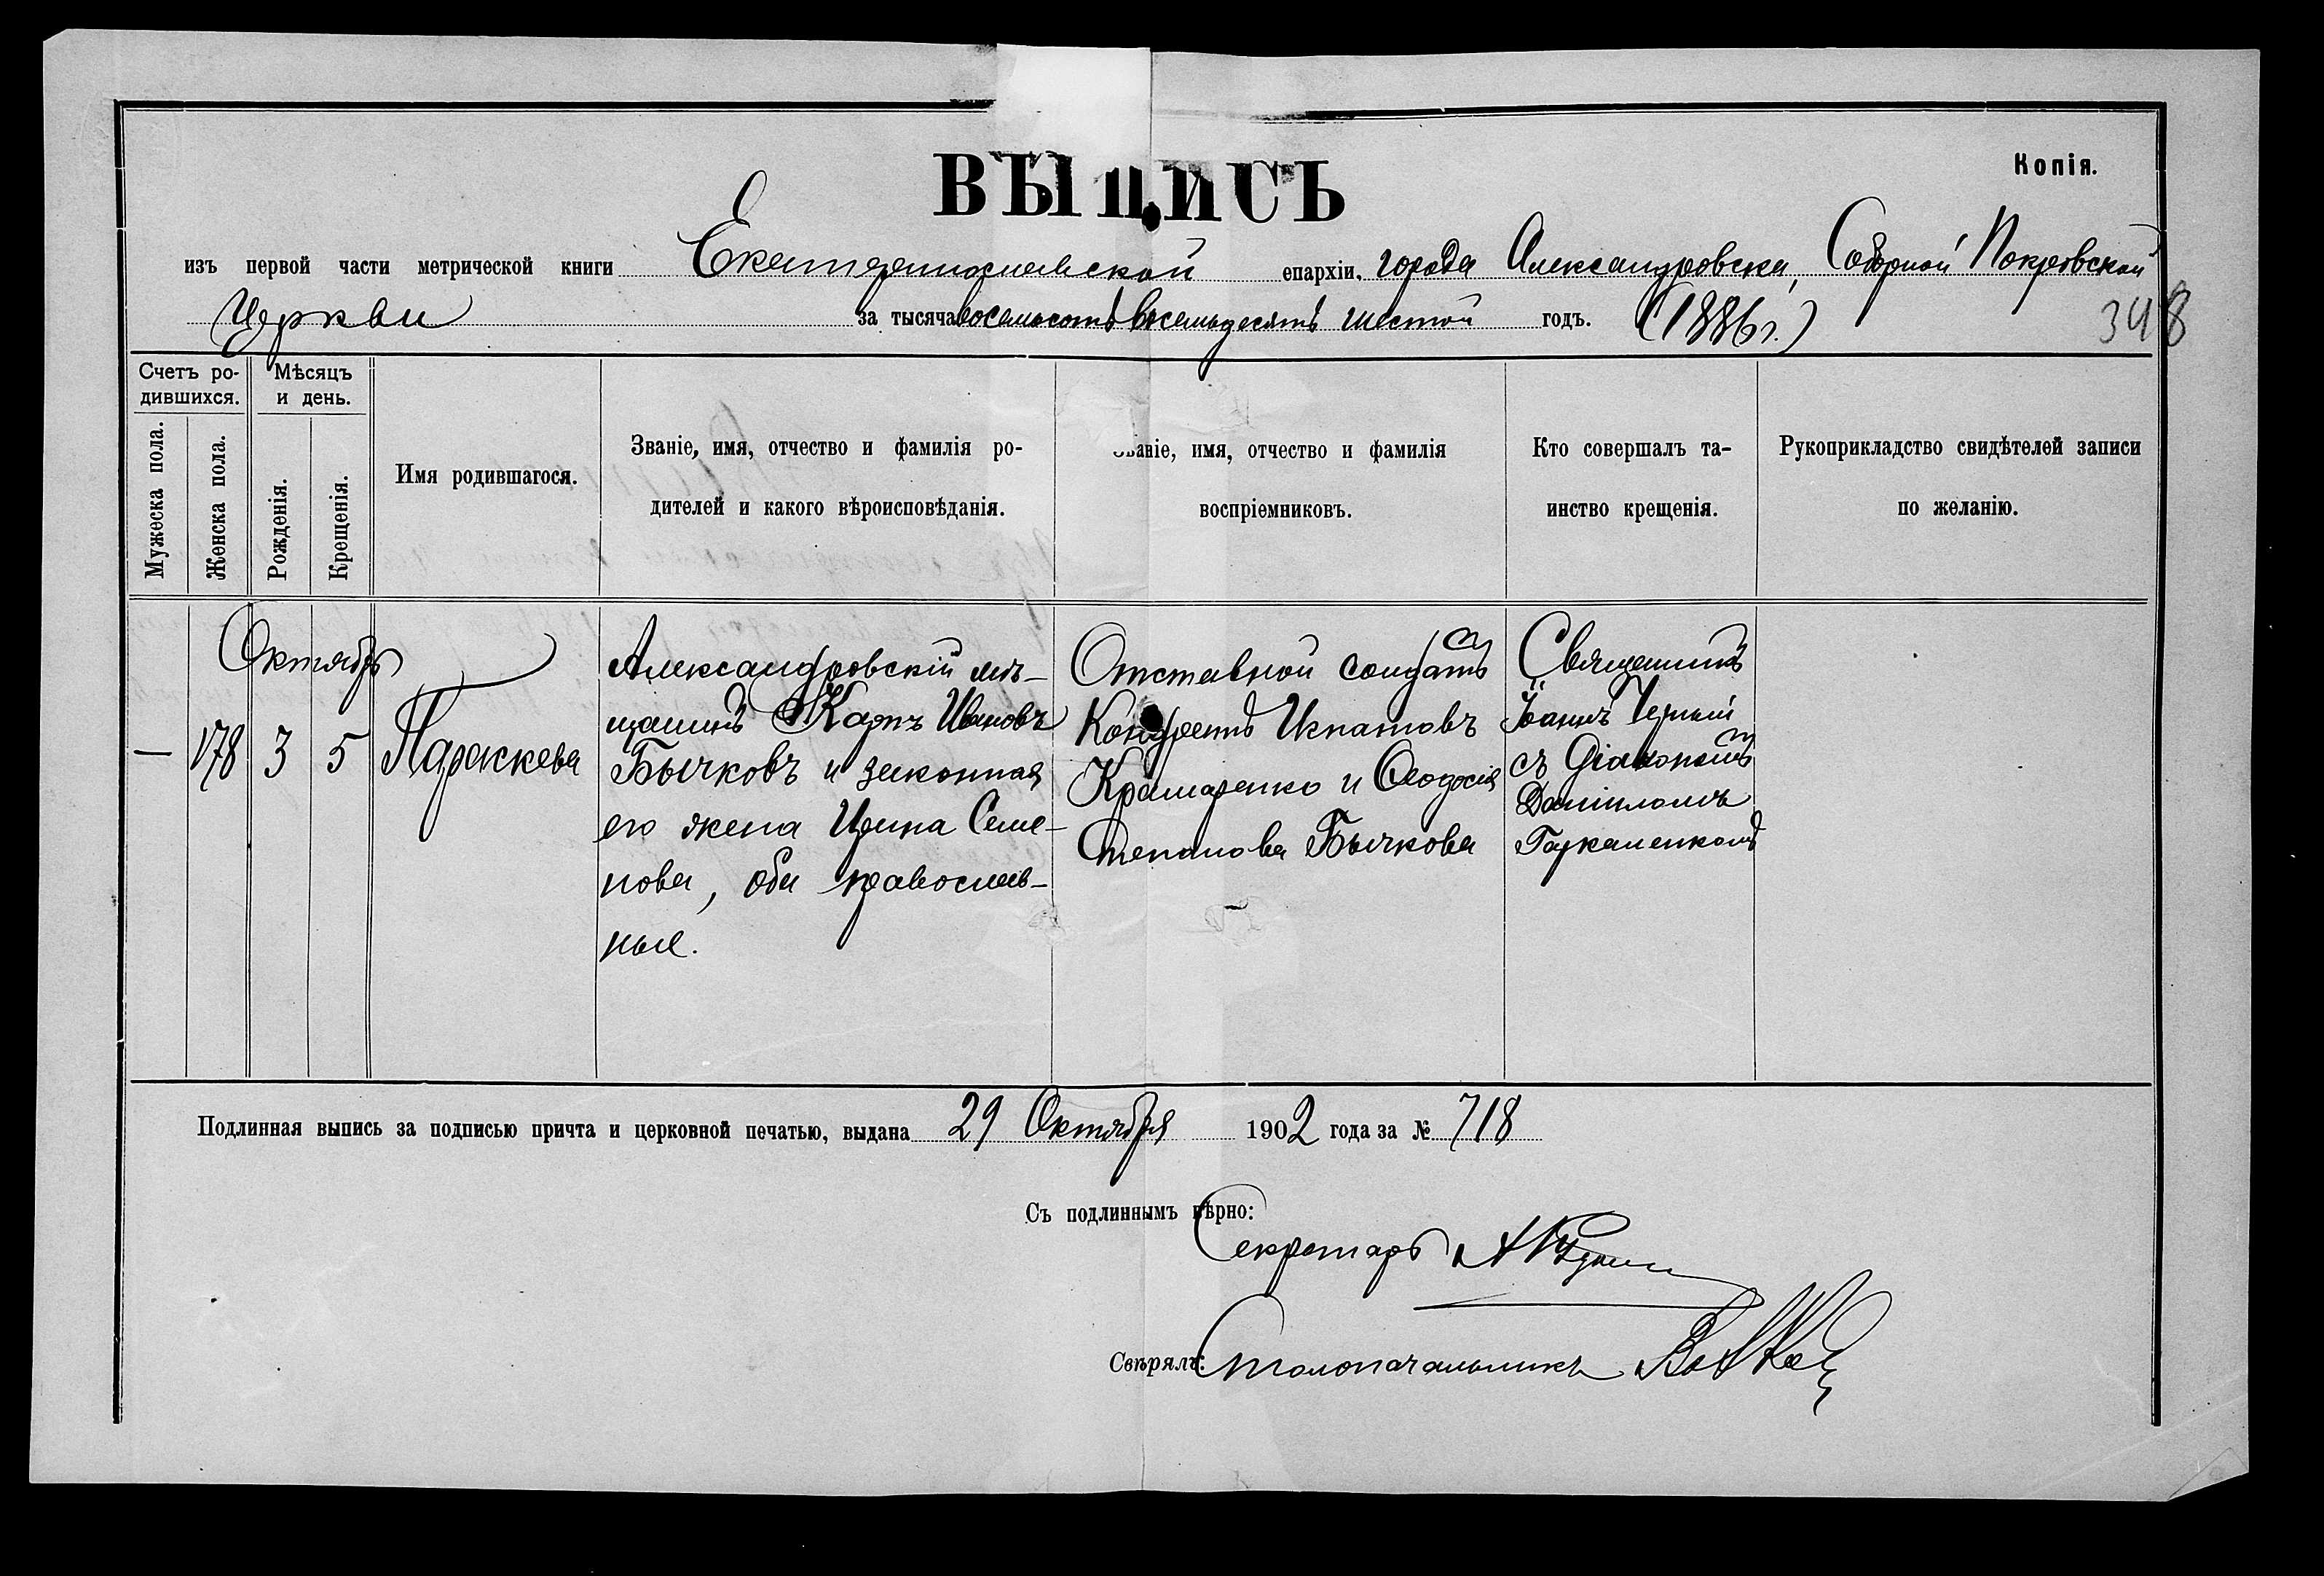 Копія.
ВЫПИСЬ
изъ первой части метрической книги Екатеринославской епархіи, города Александровска, Соборной Покровской
Церкви за тысяча восемьсотъ восемьдесятъ шестой годъ. (1886 г.)
348
Счетъ ро-
дившихся.
Мужеска пола.
Женска пола.
Мѣсяцъ
и день.
Рожденія.
Крещенія.
Имя родившагося.
Званіе, имя, отчество и фамилія ро-
дителей и какого вѣроисповѣданія.
Званіе, имя, отчество и фамилія
воспріемниковъ.
Кто совершалъ та-
инство крещенія.
Рукоприкладство свидѣтелей записи
по желанію.
Октябрь
— 178 3 5 Параскева
Александровскій мѣ-
щанинъ Карпъ Ивановъ
Бычковъ и законная
его жена Ирина Семе-
нова, оба православ-
ные.
Отставной солдатъ
Игнатовъ
Крамаренко и Ѳеодосія
Степанова Бычкова
Священникъ
Іоаннъ Черный
съ Діакономъ
Даніиломъ
Подлинная выпись за подписью причта и церковной печатью, выдана 29 Октября 1902 года за № 718
Съ подлиннымъ вѣрно:
Секретарь
Свѣрялъ: Столоначальникъ